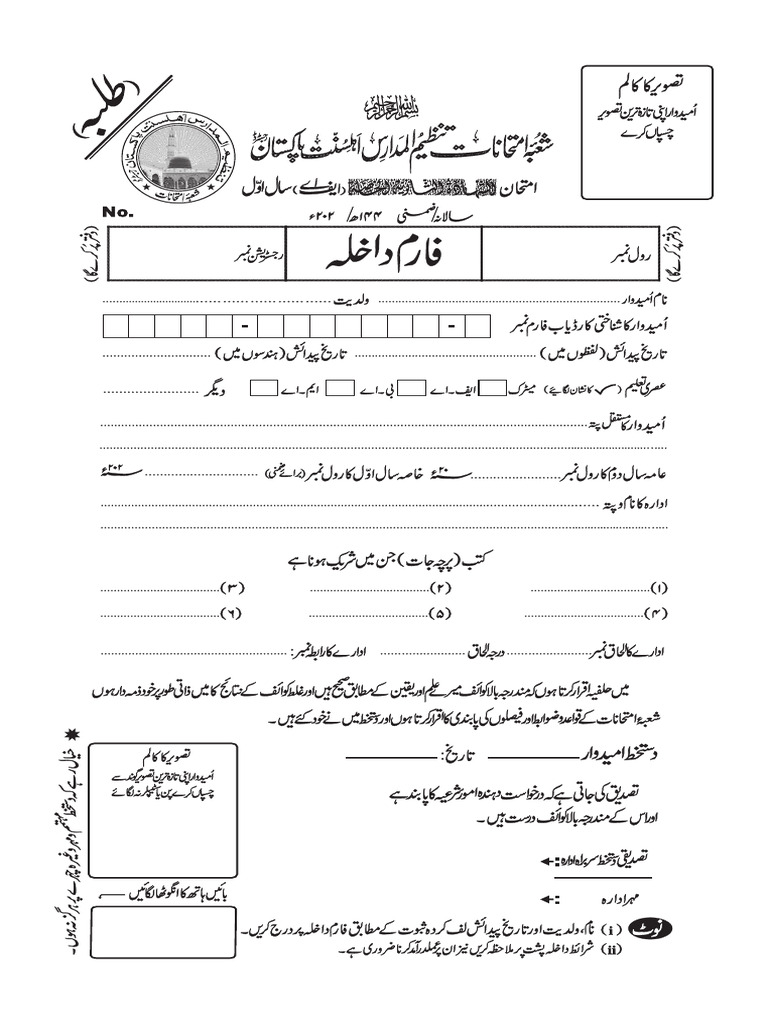 طلبہ
تصویر کا کالم
اُمیدوار اپنی تازہ ترین تصویر
چسپاں کرے
شعبۂ امتحانات تنظیم المدارس اہلسنت پاکستان
امتحان (ایف اے) سال اوّل
No.
سالانہ/ضمنی ۱۴۴ھ/ ۲۰۲ء
(دفتر پُر کرے گا)
رول نمبر
فارم داخلہ
رجسٹریشن نمبر
(دفتر پُر کرے گا)
نام اُمیدوار ........ ولدیت ........
اُمیدوار کا شناختی کارڈ یا ب فارم نمبر - -
تاریخ پیدائش (لفظوں میں) ........ تاریخ پیدائش (ہندسوں میں) ........
عصری تعلیم (✓ کا نشان لگائیے) میٹرک ایف۔اے بی۔اے ایم۔اے دیگر ........
اُمیدوار کا مستقل پتہ ........
عامہ سال دوم کا رول نمبر ........ ۲۰ء خاصہ سال اوّل کا رول نمبر (برائے ضمنی) ........ ۲۰۲ء
ادارہ کا نام و پتہ ........
کتب (پرچہ جات) جن میں شریک ہونا ہے
(۱) ........ (۲) ........ (۳) ........
(۴) ........ (۵) ........ (۶) ........
ادارے کا الحاق نمبر ........ درجہ الحاق ........ ادارے کا رابطہ نمبر: ........
میں حلفیہ اقرار کرتا ہوں کہ مندرجہ بالا کوائف میرے علم اور یقین کے مطابق صحیح ہیں اور غلط کوائف کے نتائج کا میں ذاتی طور پر خود ذمہ دار ہوں
شعبۂ امتحانات کے قواعد و ضوابط اور فیصلوں کی پابندی کا اقرار کرتا ہوں اور دستخط میں نے خود کئے ہیں ۔
دستخط امیدوار ________ تاریخ: ________
تصدیق کی جاتی ہے کہ درخواست دہندہ امور شرعیہ کا پابند ہے
اور اس کے مندرجہ بالا کوائف درست ہیں ۔
تصدیقی دستخط سربراہ ادارہ :←
مہر ادارہ :←
تصویر کا کالم
اُمیدوار اپنی تازہ ترین تصویر گوند سے
چسپاں کرے پن یا سٹیپلر نہ لگائے
بائیں ہاتھ کا انگوٹھا لگائیں
✷ خیال رہے کہ دستخط مہتمم و مہر وغیرہ چہرے پر ہرگز نہ ہوں ۔
نوٹ (i) نام، ولدیت اور تاریخ پیدائش لف کردہ ثبوت کے مطابق فارم داخلہ پر درج کریں۔
(ii) شرائط داخلہ پشت پر ملاحظہ کریں نیز ان پر عملدرآمد کرنا ضروری ہے ۔